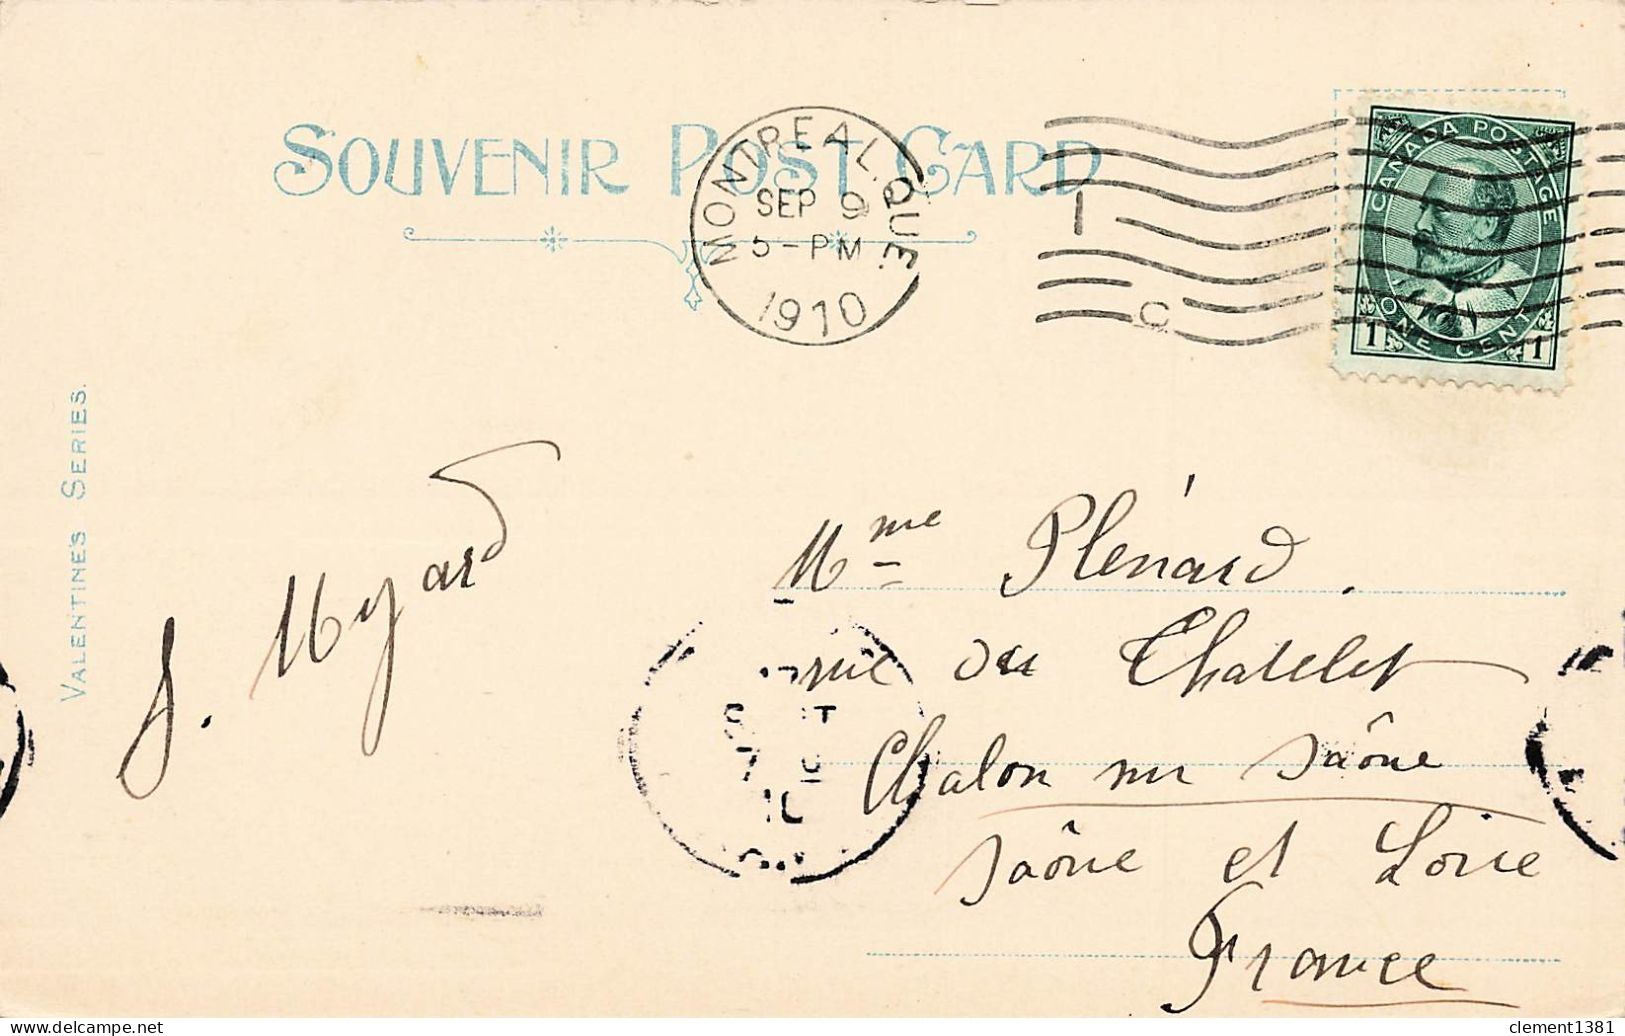 SOUVENIR POST CARD
MONTREAL. QUE.
SEP 9
5-PM
1910
1
C
CANADA POSTAGE
ONE CENT
1 1
VALENTINE'S SERIES.
J. Myard
Mme Plénard.
rue du Chatelet
Chalon sur Saône
Saône et Loire
France
clement1381